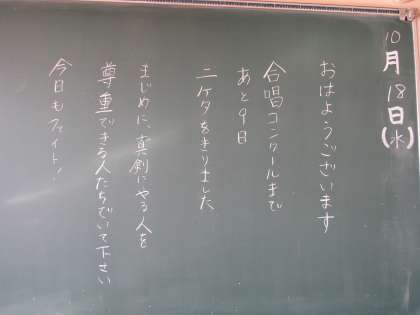 10月18日(水)
おはようございます
合唱コンクールまで
あと9日
ニケタをきりました
まじめに、真剣にやる人を
尊重できる人たちでいて下さい
今日もファイト!